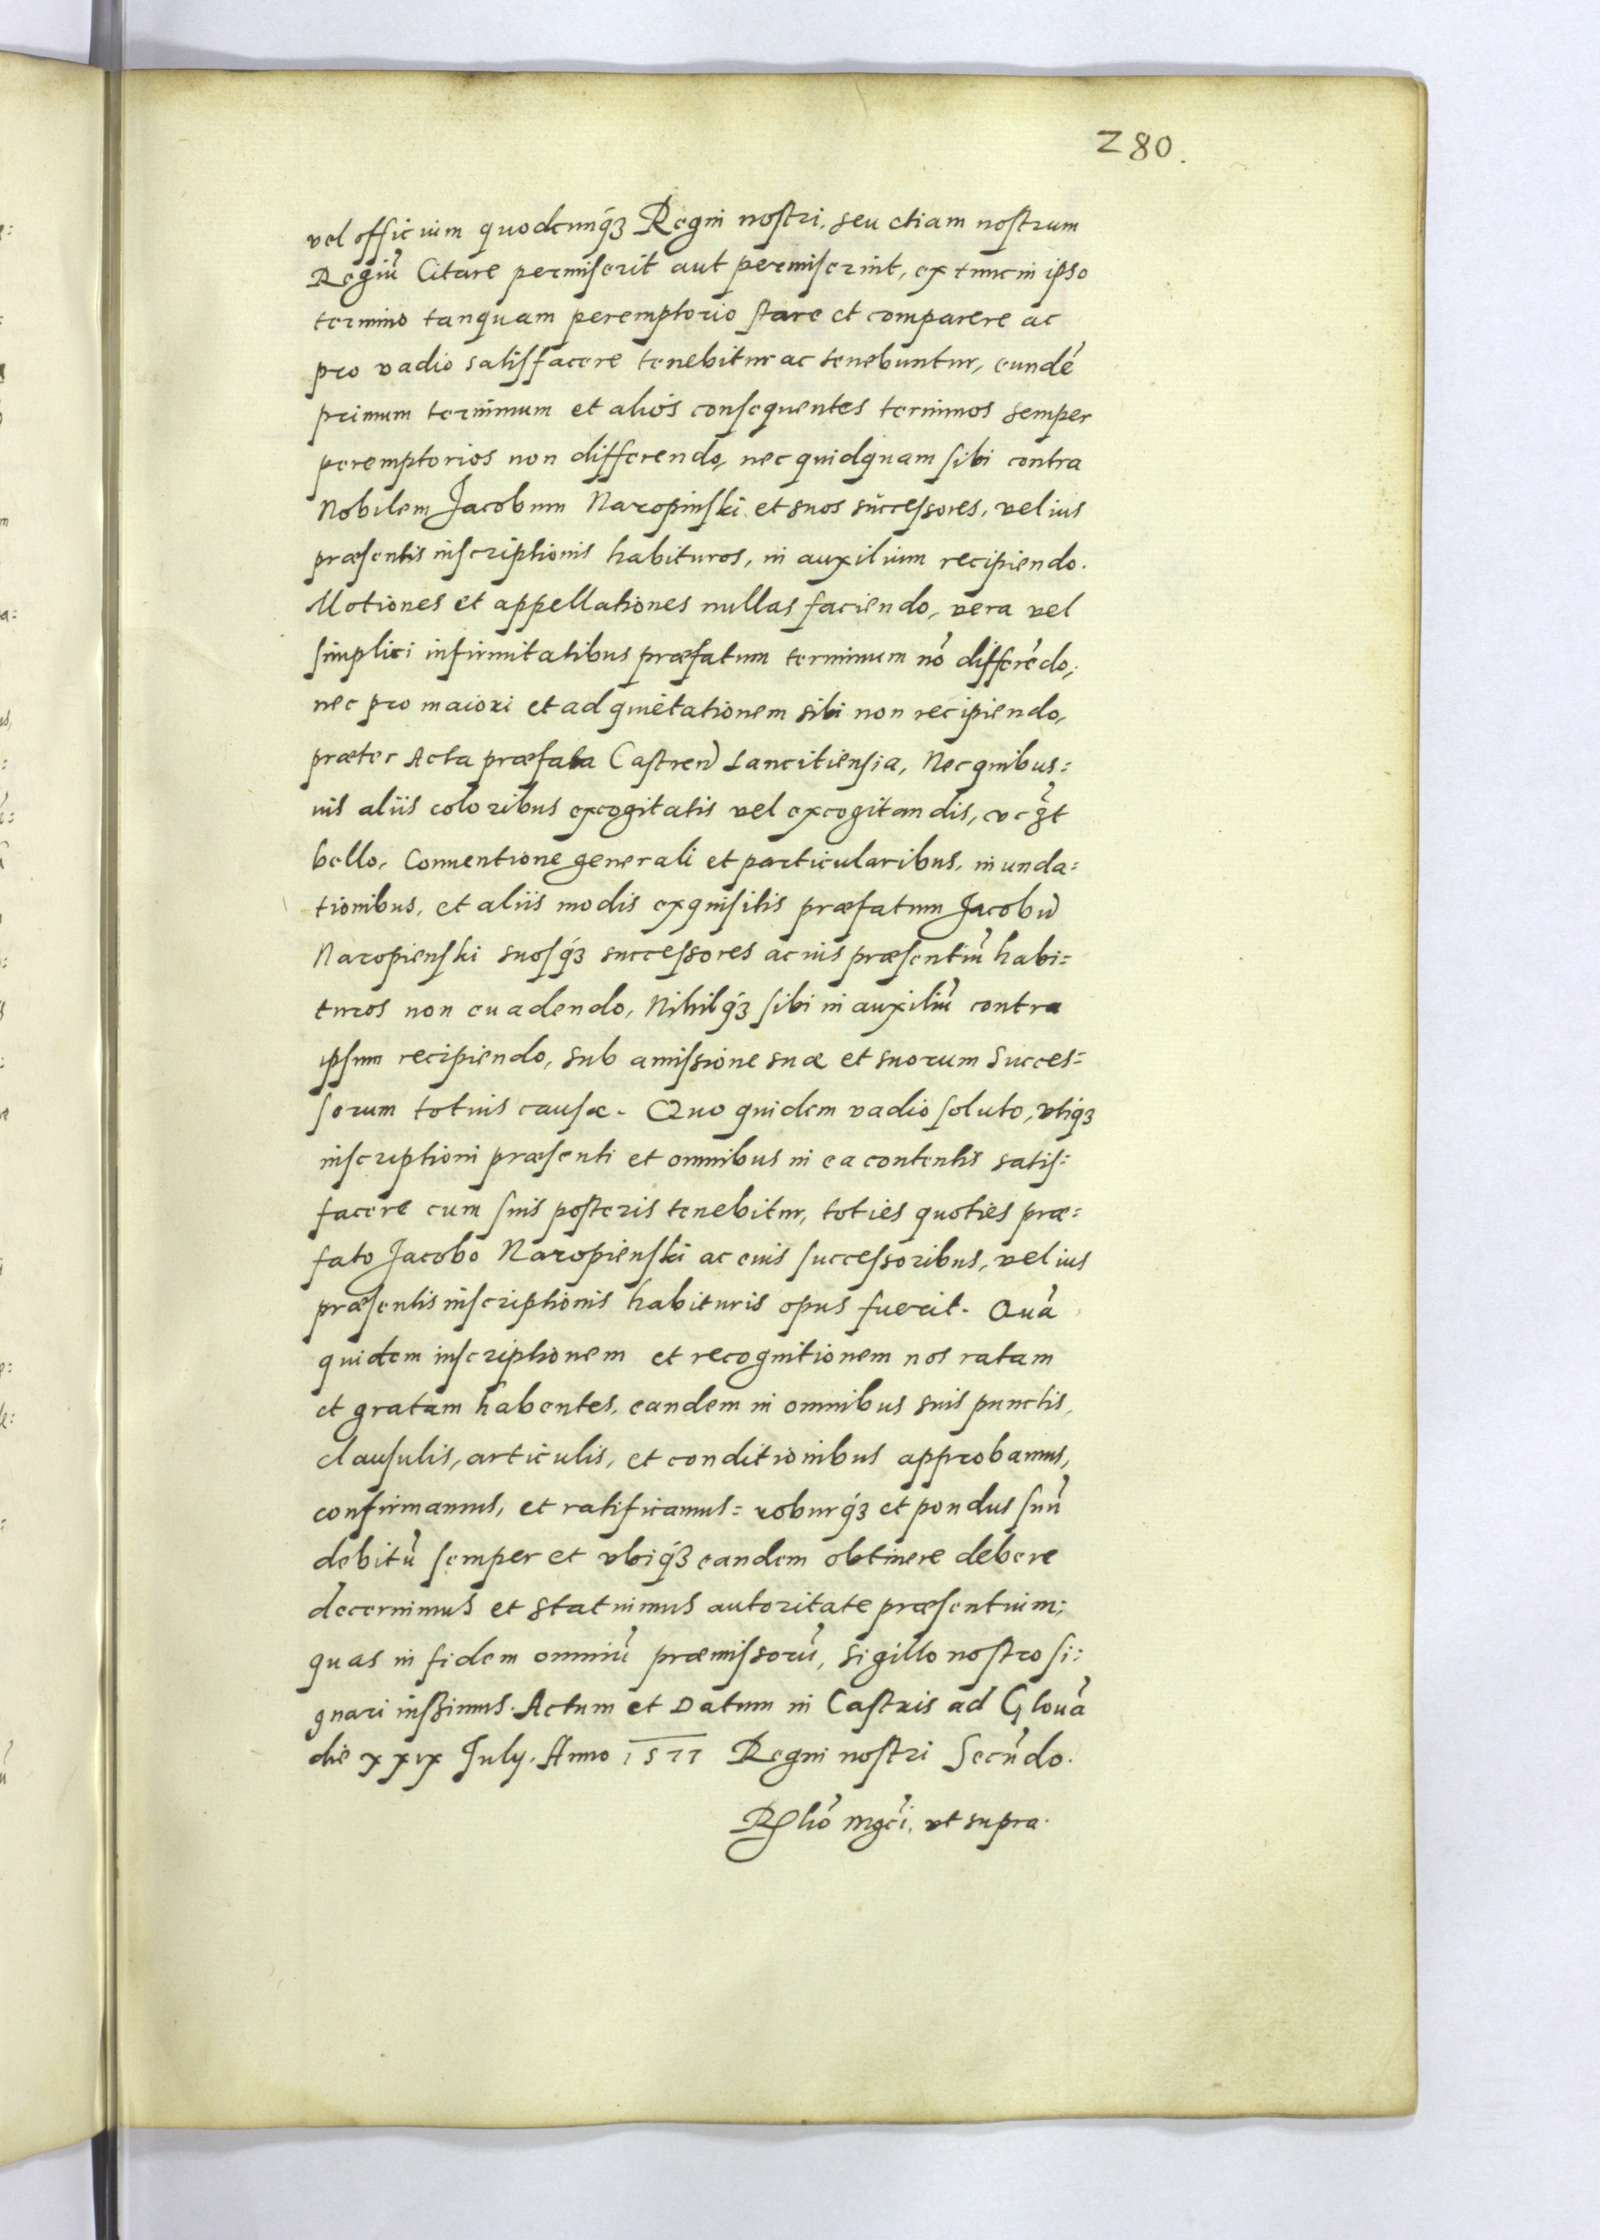 280.
vel officium quodcunq́ꝫ Regni nostri, seu etiam nostrum
Regiū Citare permiserit aut permiserint, ex tunc in ipso
termino tanquam peremptorio stare et comparere ac
pro vadio satisfacere tenebitur ac tenebuntur, eundē
primum terminum et alios consequentes terminos semper
peremptorios non differendo, nec quidquam sibi contra
Nobilem Jacobum Naropinski et suos successores, vel ius
præsentis inscriptionis habituros, in auxilium recipiendo.
Motiones et appellationes nullas faciendo, vera vel
simplici infirmitatibus præfatum terminum nō differēdo,
nec pro maiori et ad quietationem sibi non recipiendo,
præter Acta præfata Castren̄ Lancitiensia, Nec quibus=
uis aliis coloribus excogitatis vel excogitandis,
bello, Conuentione generali et particularibus, inunda=
tionibus, et aliis modis exquisitis præfatum Jacobū
Naropienski suosq́ꝫ successores ac ius præsentiū habi=
turos non euadendo, Nihilq́ꝫ sibi in auxiliū contra
ipsum recipiendo, sub amissione suæ et suorum Succes=
sorum totius causæ. Quo quidem vadio soluto, vtiqꝫ
inscriptioni præsenti et omnibus in ea contentis satis=
facere cum suis posteris tenebitur, toties quoties præ=
fato Jacobo Naropienski ac eius successoribus, vel ius
præsentis inscriptionis habituris opus fuerit. Quā
quidem inscriptionem et recognitionem nos ratam
et gratam habentes, eandem in omnibus suis punctis,
clausulis, articulis, et conditionibus approbamus,
confirmamus, et ratificamus= roburq́ꝫ et pondus suū
debitū semper et vbiq́ꝫ eandem obtinere debere
decernimus et statuimus autoritate præsentium;
quas in fidem omniū præmissorū, sigillo nostro si=
gnari iussimus. Actum et Datum in Castris ad Glouā
die xxix July. Anno 1577 Regni nostri Secūdo.
Rlīo mgcī, vt supra.